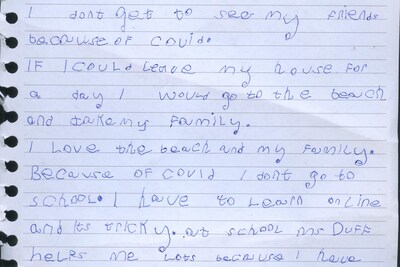 I dont get to see my friends
because of covid.
IF I COULD Leave my house FOR
a day I would go to the beach
and take my FamILy.
I Love the beach and my FamILy.
Because OF COVID I don't go to
school. I have to Learn onLine
and its tricky. at school ms DUFF
heLPs me Lots because I have